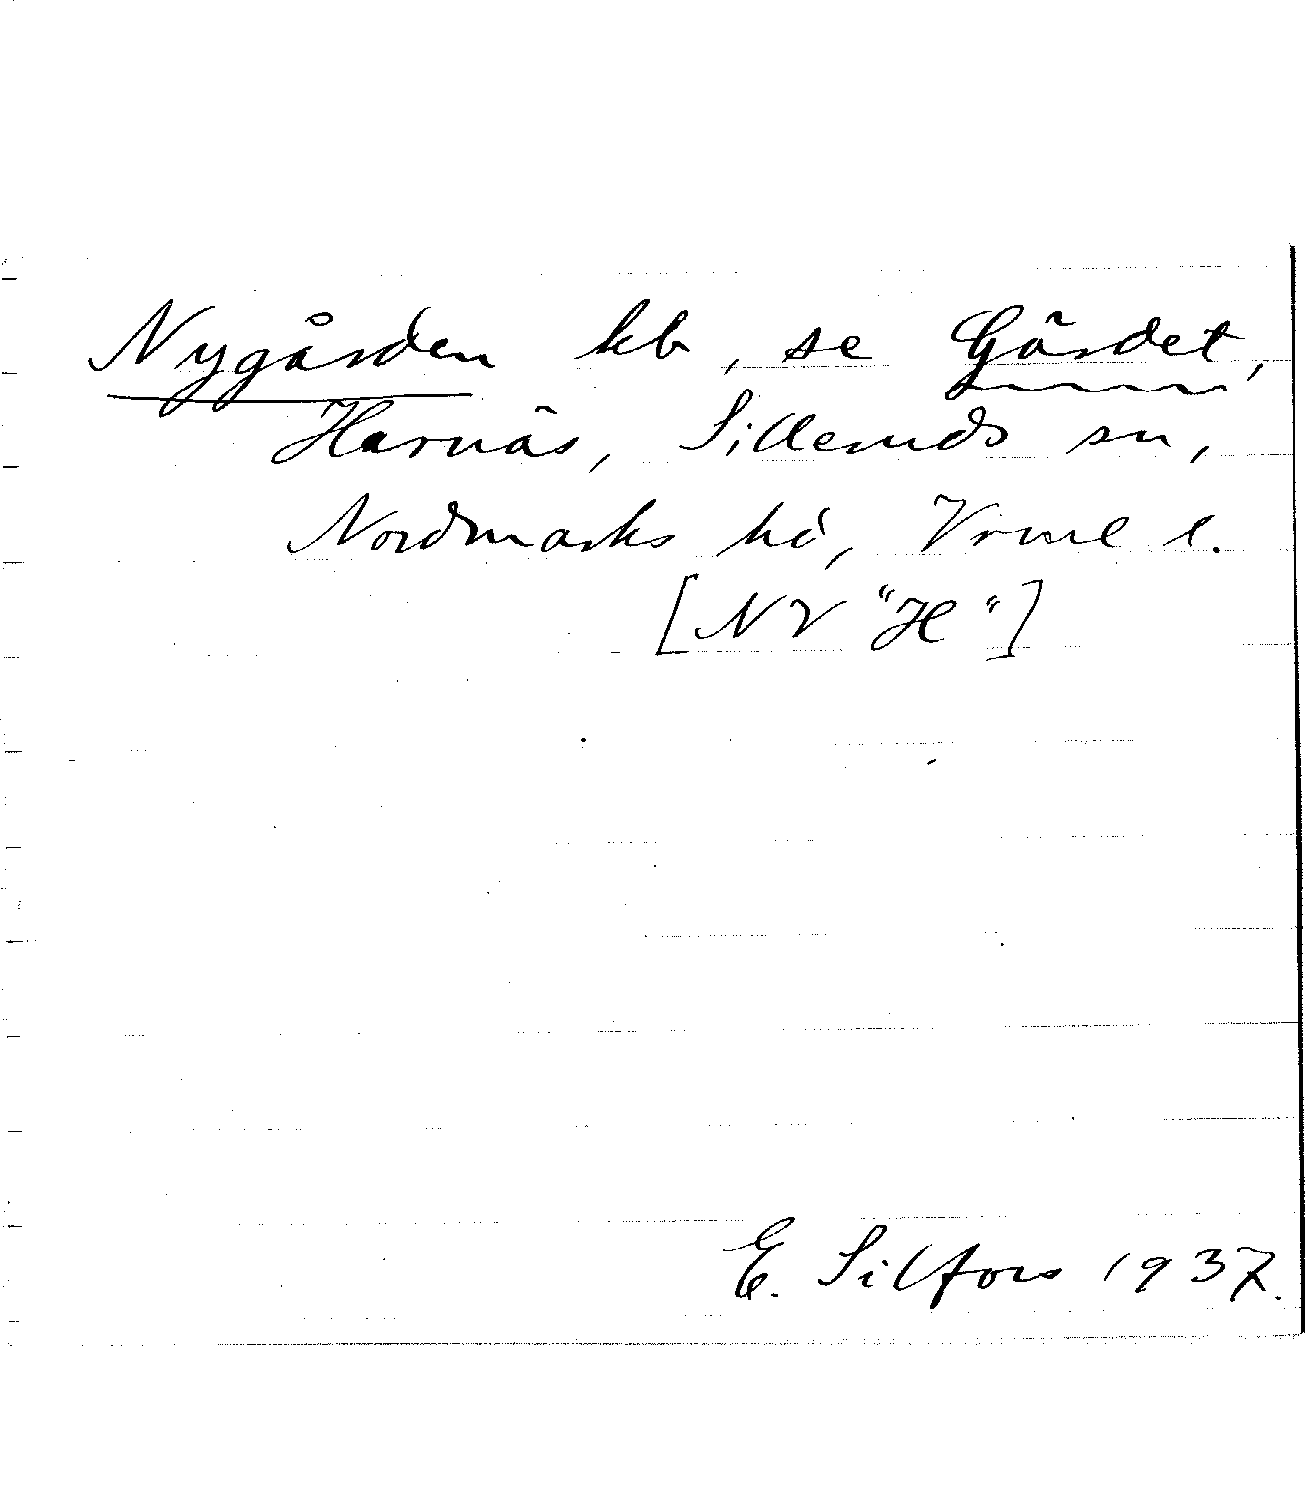 Nygården hb, se Gärdet,
Harnäs, Silleruds sn,
Nordmarks hd, Vrml l.
[NV "H"]
E. Silfors 1937.